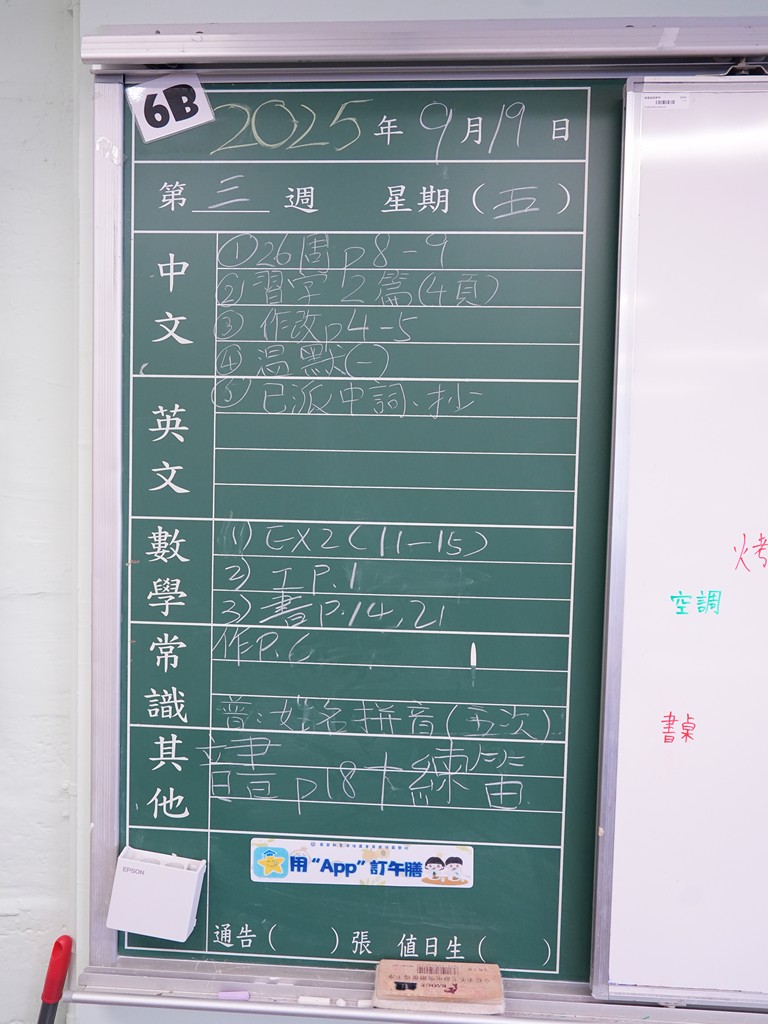 6B
2025年9月19日
第三週 星期(五)
中文
①26周p8-9
②習字2篇(4頁)
③作改p4-5
④温默(一)
英文
⑤已派中詞、抄
數學
(1) EX2(11-15)
2) 工P.1
3) 書P.14,21
常識
作P.C
普:姓名拼音(五次)
其他
音書p18+練習
用“App”訂午膳
EPSON
通告( )張 值日生( )
烤
空調
書桌